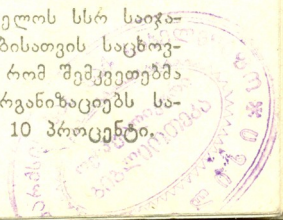 ელოს სსრ საიჯა-
ბისათვის საცხოვ-
რომ შემკვეთებმა
რგანიზაციებს სა-
10 პროცენტი.
ბიბლიოთეკა